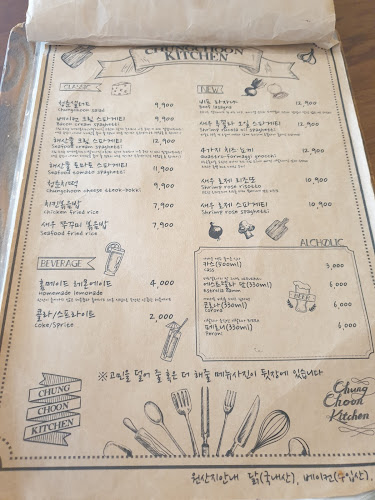 CHUNG CHOON
KITCHEN
CLASSIC
청춘샐러드 9,900
Chungchoon salad
베이컨 크림 스파게티 9,900
Bacon cream spaghetti
해산물 크림 스파게티 12,900
Seafood cream spaghetti
해산물 토마토 스파게티 11,900
Seafood tomato spaghetti
청춘치떡 9,900
Chungchoon cheese tteok-bokki
치킨볶음밥 7,900
Chicken fried rice
새우 쭈꾸미 볶음밥 7,900
Seafood fried rice
BEVERAGE
홈메이드 레몬에이드 4,000
Homemade lemonade
콜라/스프라이트 2,000
Coke/Sprite
NEW
비프 라자냐 12,900
Beef lasagna
새우 루꼴라 오일 스파게티 12,900
Shrimp rucola oil spaghetti
4가지 치즈 뇨끼 12,900
Quattro-formaggi gnocchi
새우 로제 리조또 10,900
Shrimp rose risotto
새우 로제 스파게티 10,900
Shrimp rose spaghetti
ALCHOLIC
카스(500ml) 3,000
Cass
에스트렐라 담(330ml) 6,000
Estrella Damm
코로나(330ml) 6,000
Corona
페로니(330ml) 6,000
Peroni
BEER
※고민을 덜어 줄 혹은 더 해줄 메뉴사진이 뒷장에 있습니다
CHUNG
CHOON
KITCHEN
Chung
Choon
Kitchen
원산지안내 닭(국내산), 베이컨(수입산),